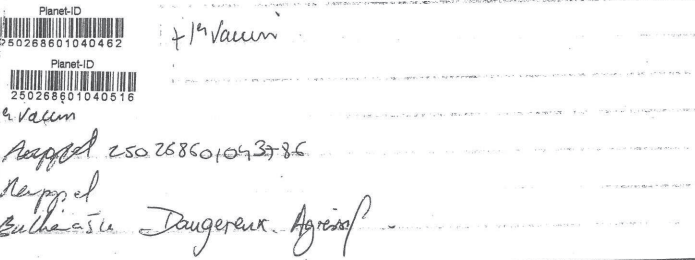 Planet-ID
250268601040462
+ 1er Vaccin
Planet-ID
250268601040516
er Vaccin
Rappel 250268601043786
Rappel
Euthanasie Dangereux. Agressif.